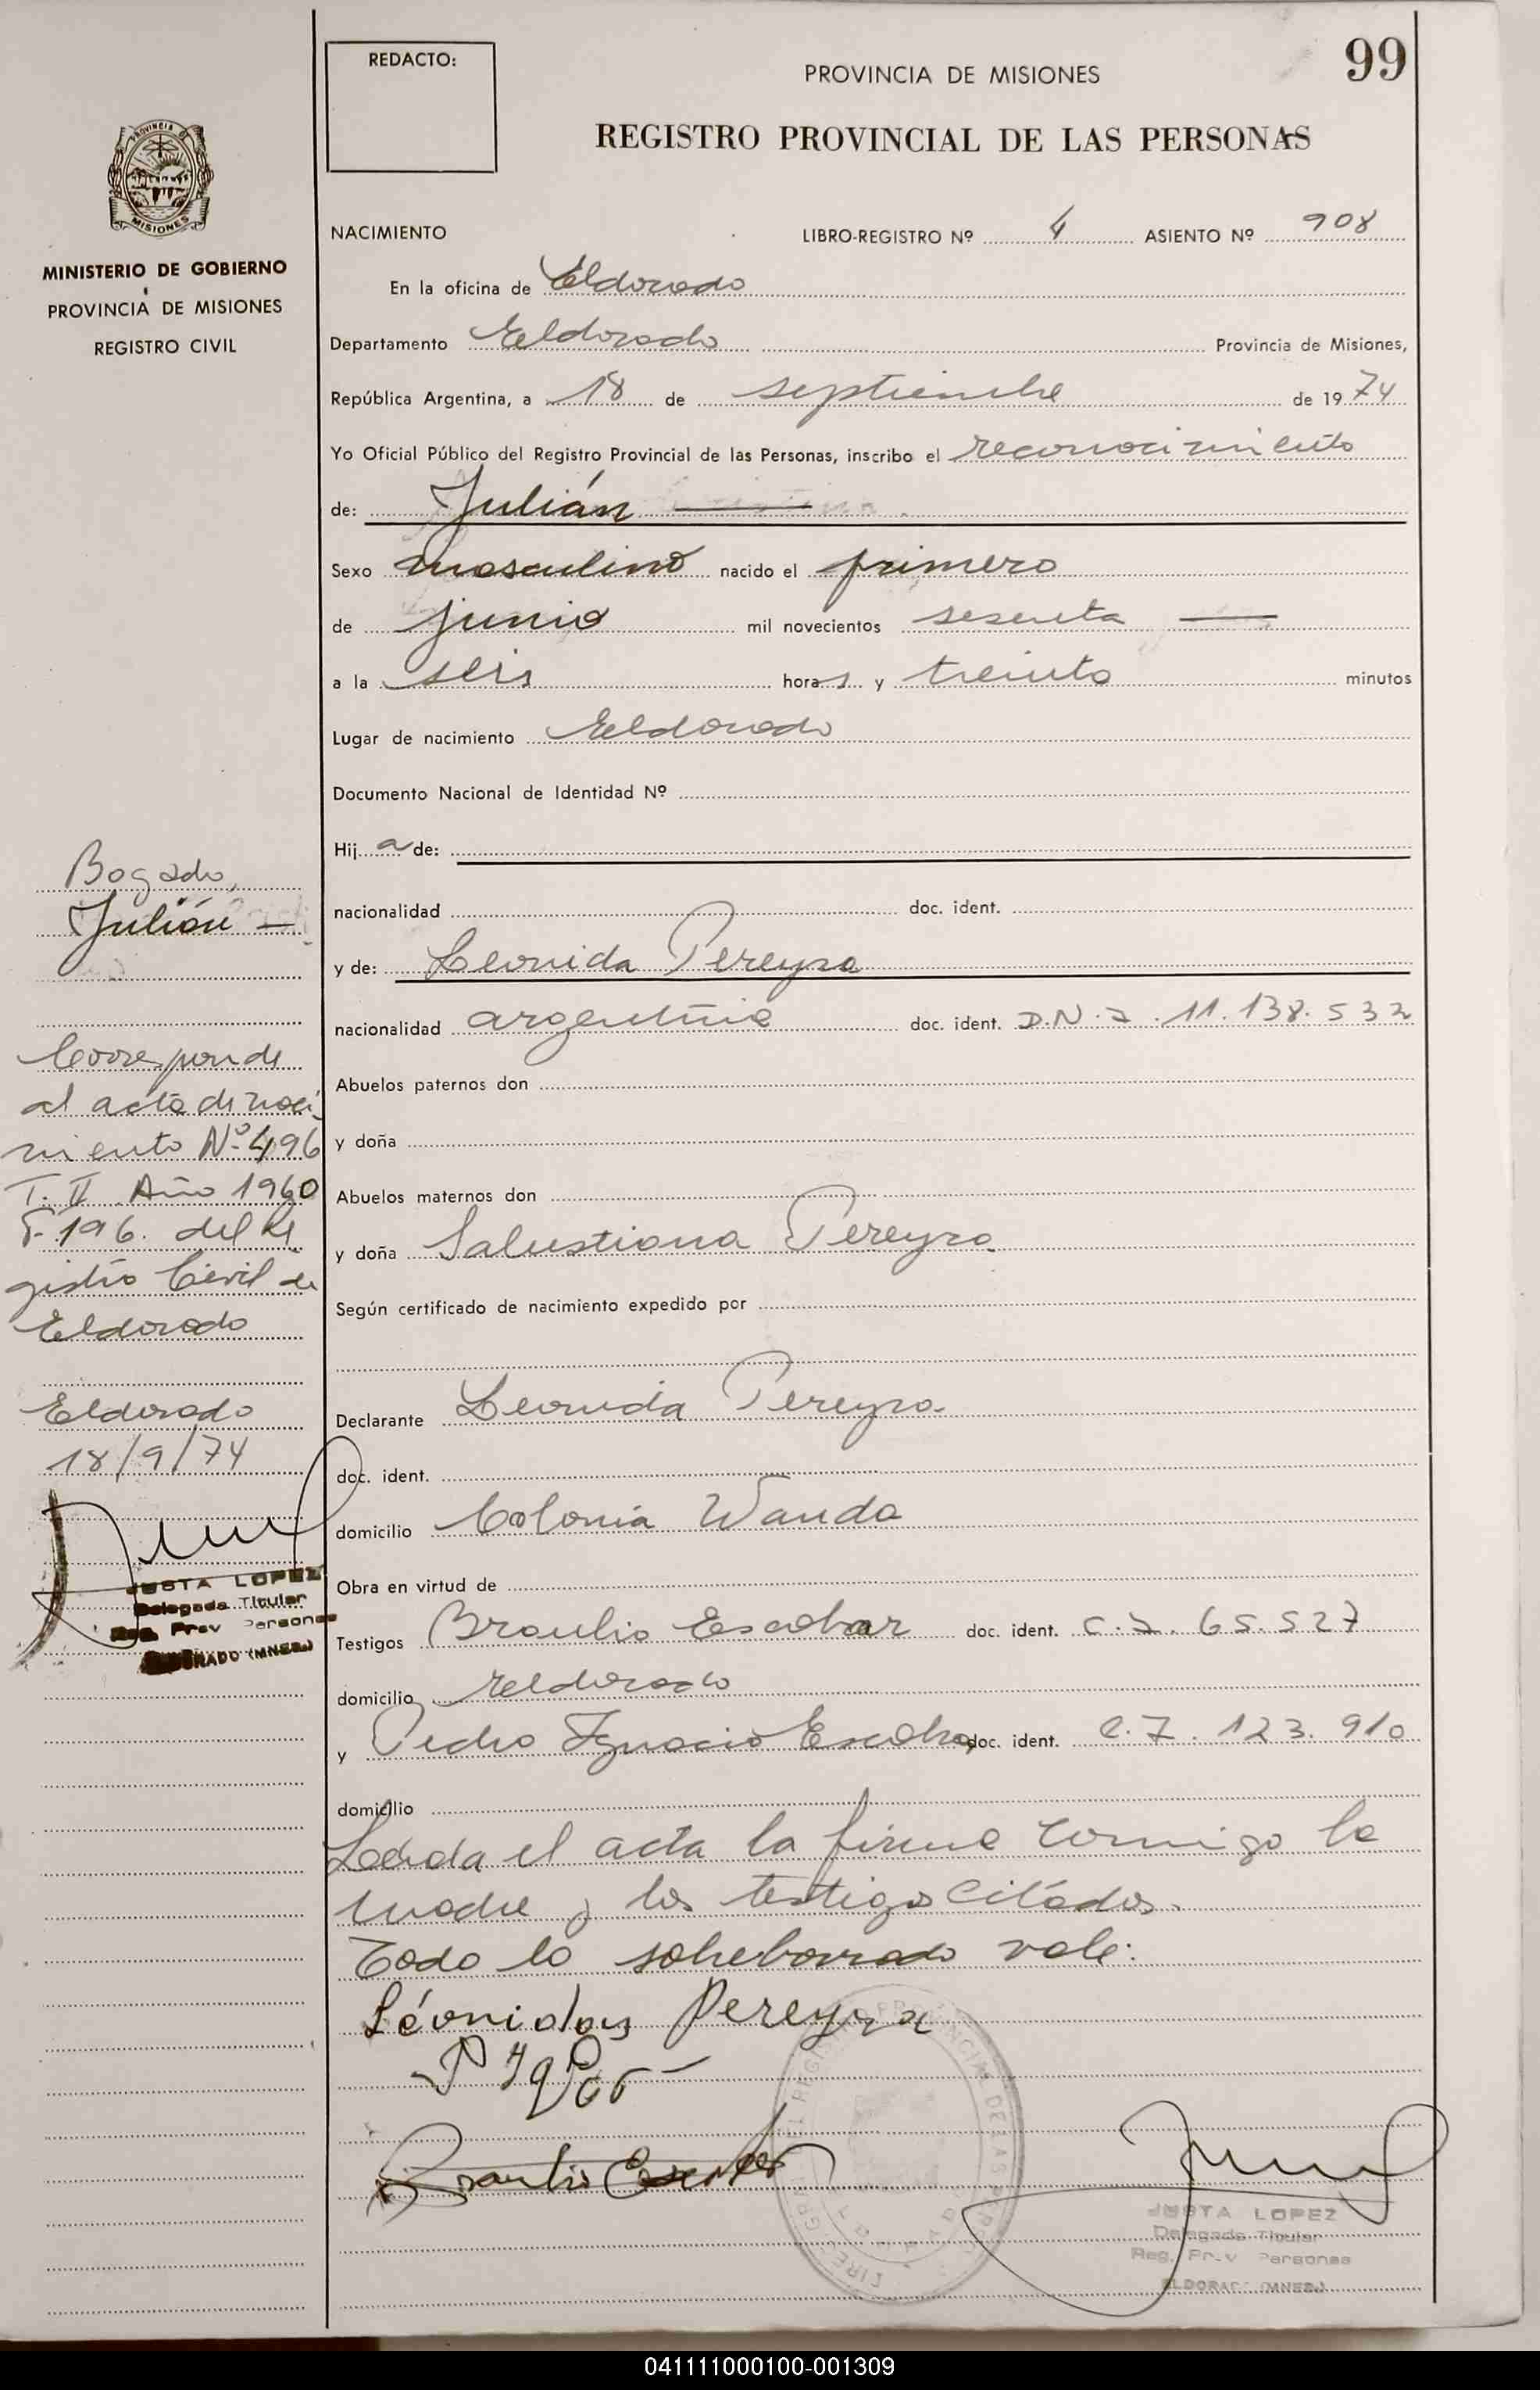 REDACTO:
99
PROVINCIA DE MISIONES
REGISTRO PROVINCIAL DE LAS PERSONAS
PROVINCIA DE
MISIONES
MINISTERIO DE GOBIERNO
PROVINCIA DE MISIONES
REGISTRO CIVIL
NACIMIENTO LIBRO-REGISTRO Nº 4 ASIENTO Nº 908
En la oficina de Eldorado
Departamento Eldorado Provincia de Misiones,
República Argentina, a 18 de septiembre de 1974
Yo Oficial Público del Registro Provincial de las Personas, inscribo el reconocimiento
de: Julián
Sexo masculino nacido el primero
de junio mil novecientos sesenta
a la seis horas y treinta minutos
Lugar de nacimiento Eldorado
Documento Nacional de Identidad Nº
Hij a de:
nacionalidad doc. ident.
y de: Leonida Pereyra
nacionalidad argentina doc. ident. D.N.I. 11.138.532
Abuelos paternos don
y doña
Abuelos maternos don
y doña Salustiana Pereyra
Según certificado de nacimiento expedido por
Declarante Leonida Pereyra
doc. ident.
domicilio Colonia Wanda
Obra en virtud de
Testigos Braulio Escobar doc. ident. C.I. 65.527
domicilio Eldorado
y Pedro Ignacio Escobar doc. ident. C.I. 123.910
domicilio
Leída el acta la firma conmigo la
madre y los testigos citados.
Todo lo sobreborrado vale:
Léonidas Pereyra
Braulio Escobar
JUSTA LOPEZ
Delegada Titular
Reg. Prov Personas
ELDORADO (MNES.)
Bogado,
Julián
Corresponde
al acta de naci
miento Nº 496
T. II Año 1960
F. 196. del Re
gistro Civil de
Eldorado
Eldorado
18/9/74
JUSTA LOPEZ
Delegada Titular
Reg. Prov Personas
ELDORADO (MNES.)
041111000100-001309